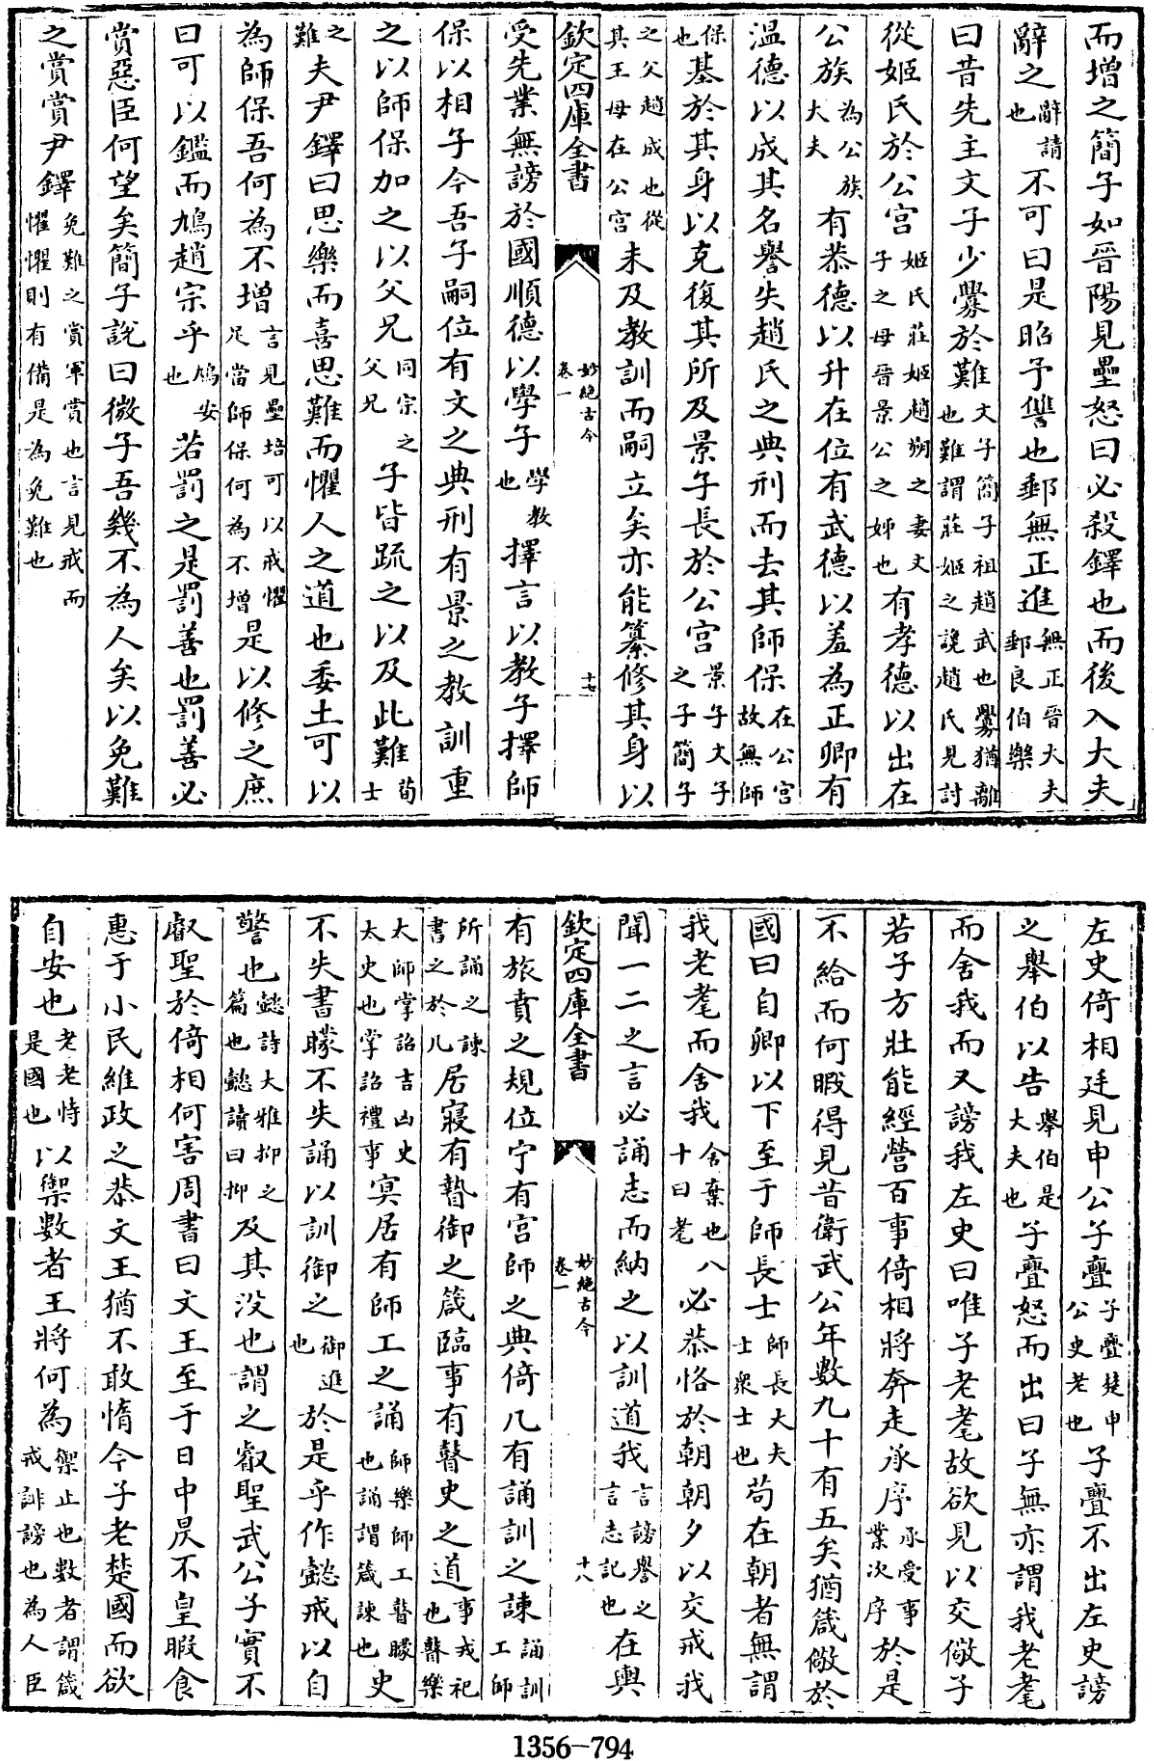 而增之簡子如晉陽見壘怒曰必殺鐸也而後入大夫
辭之辭請也不可曰是昭予讐也郵無正進無正晉大夫郵良伯樂
曰昔先主文子少釁於難文子簡子祖趙武也釁猶離也難謂莊姬之讒趙氏見討
從姬氏於公宮姬氏莊姬趙朔之妻文子之母晉景公之姊也有孝德以出在
公族為公族大夫有恭德以升在位有武德以羞為正卿有
温德以成其名譽失趙氏之典刑而去其師保在公宮故無師
保也基於其身以克復其所及景子長於公宮景子文子之子簡子
之父趙成也從其王母在公宮未及教訓而嗣立矣亦能纂修其身以
欽定四庫全書
妙絶古今
卷一
十七
受先業無謗於國順德以學子學教也擇言以教子擇師
保以相子今吾子嗣位有文之典刑有景之教訓重
之以師保加之以父兄同宗之父兄子皆疏之以及此難荀士
之難夫尹鐸曰思樂而喜思難而懼人之道也委土可以
為師保吾何為不增言見壘培可以戒懼足當師保何為不增是以修之庶
曰可以鑑而鳩趙宗乎鳩安也若罰之是罰善也罰善必
賞惡臣何望矣簡子說曰微子吾幾不為人矣以免難
之賞賞尹鐸免難之賞軍賞也言見戒而懼懼則有備是為免難也
左史倚相廷見申公子亹子亹楚申公史老也子亹不出左史謗
之舉伯以告舉伯是大夫也子亹怒而出曰子無亦謂我老耄
而舍我而又謗我左史曰唯子老耄故欲見以交儆子
若子方壯能經營百事倚相將奔走承序承受事業次序於是
不給而何暇得見昔衛武公年數九十有五矣猶箴儆於
國曰自卿以下至于師長士師長大夫士衆士也苟在朝者無謂
我老耄而舍我舍棄也八十曰耄必恭恪於朝朝夕以交戒我
聞一二之言必誦志而納之以訓道我言謗譽之言志記也在輿
欽定四庫全書
妙絶古今
卷一
十八
有旅賁之規位宁有官師之典倚几有誦訓之諫誦訓工師
所誦之諫書之於几居寢有暬御之箴臨事有瞽史之道事戎祀也瞽樂
太師掌詔吉凶史太史也掌詔禮事㝠居有師工之誦師樂師工瞽矇也誦謂箴諫也史
不失書矇不失誦以訓御之御進也於是乎作懿戒以自
警也懿詩大雅抑之篇也懿讀曰抑及其沒也謂之叡聖武公子實不
叡聖於倚相何害周書曰文王至于日中昃不皇暇食
惠于小民維政之恭文王猶不敢惰今子老楚國而欲
自安也老老恃是國也以禦數者王將何為禦止也數者謂箴戒誹謗也為人臣
1356—794